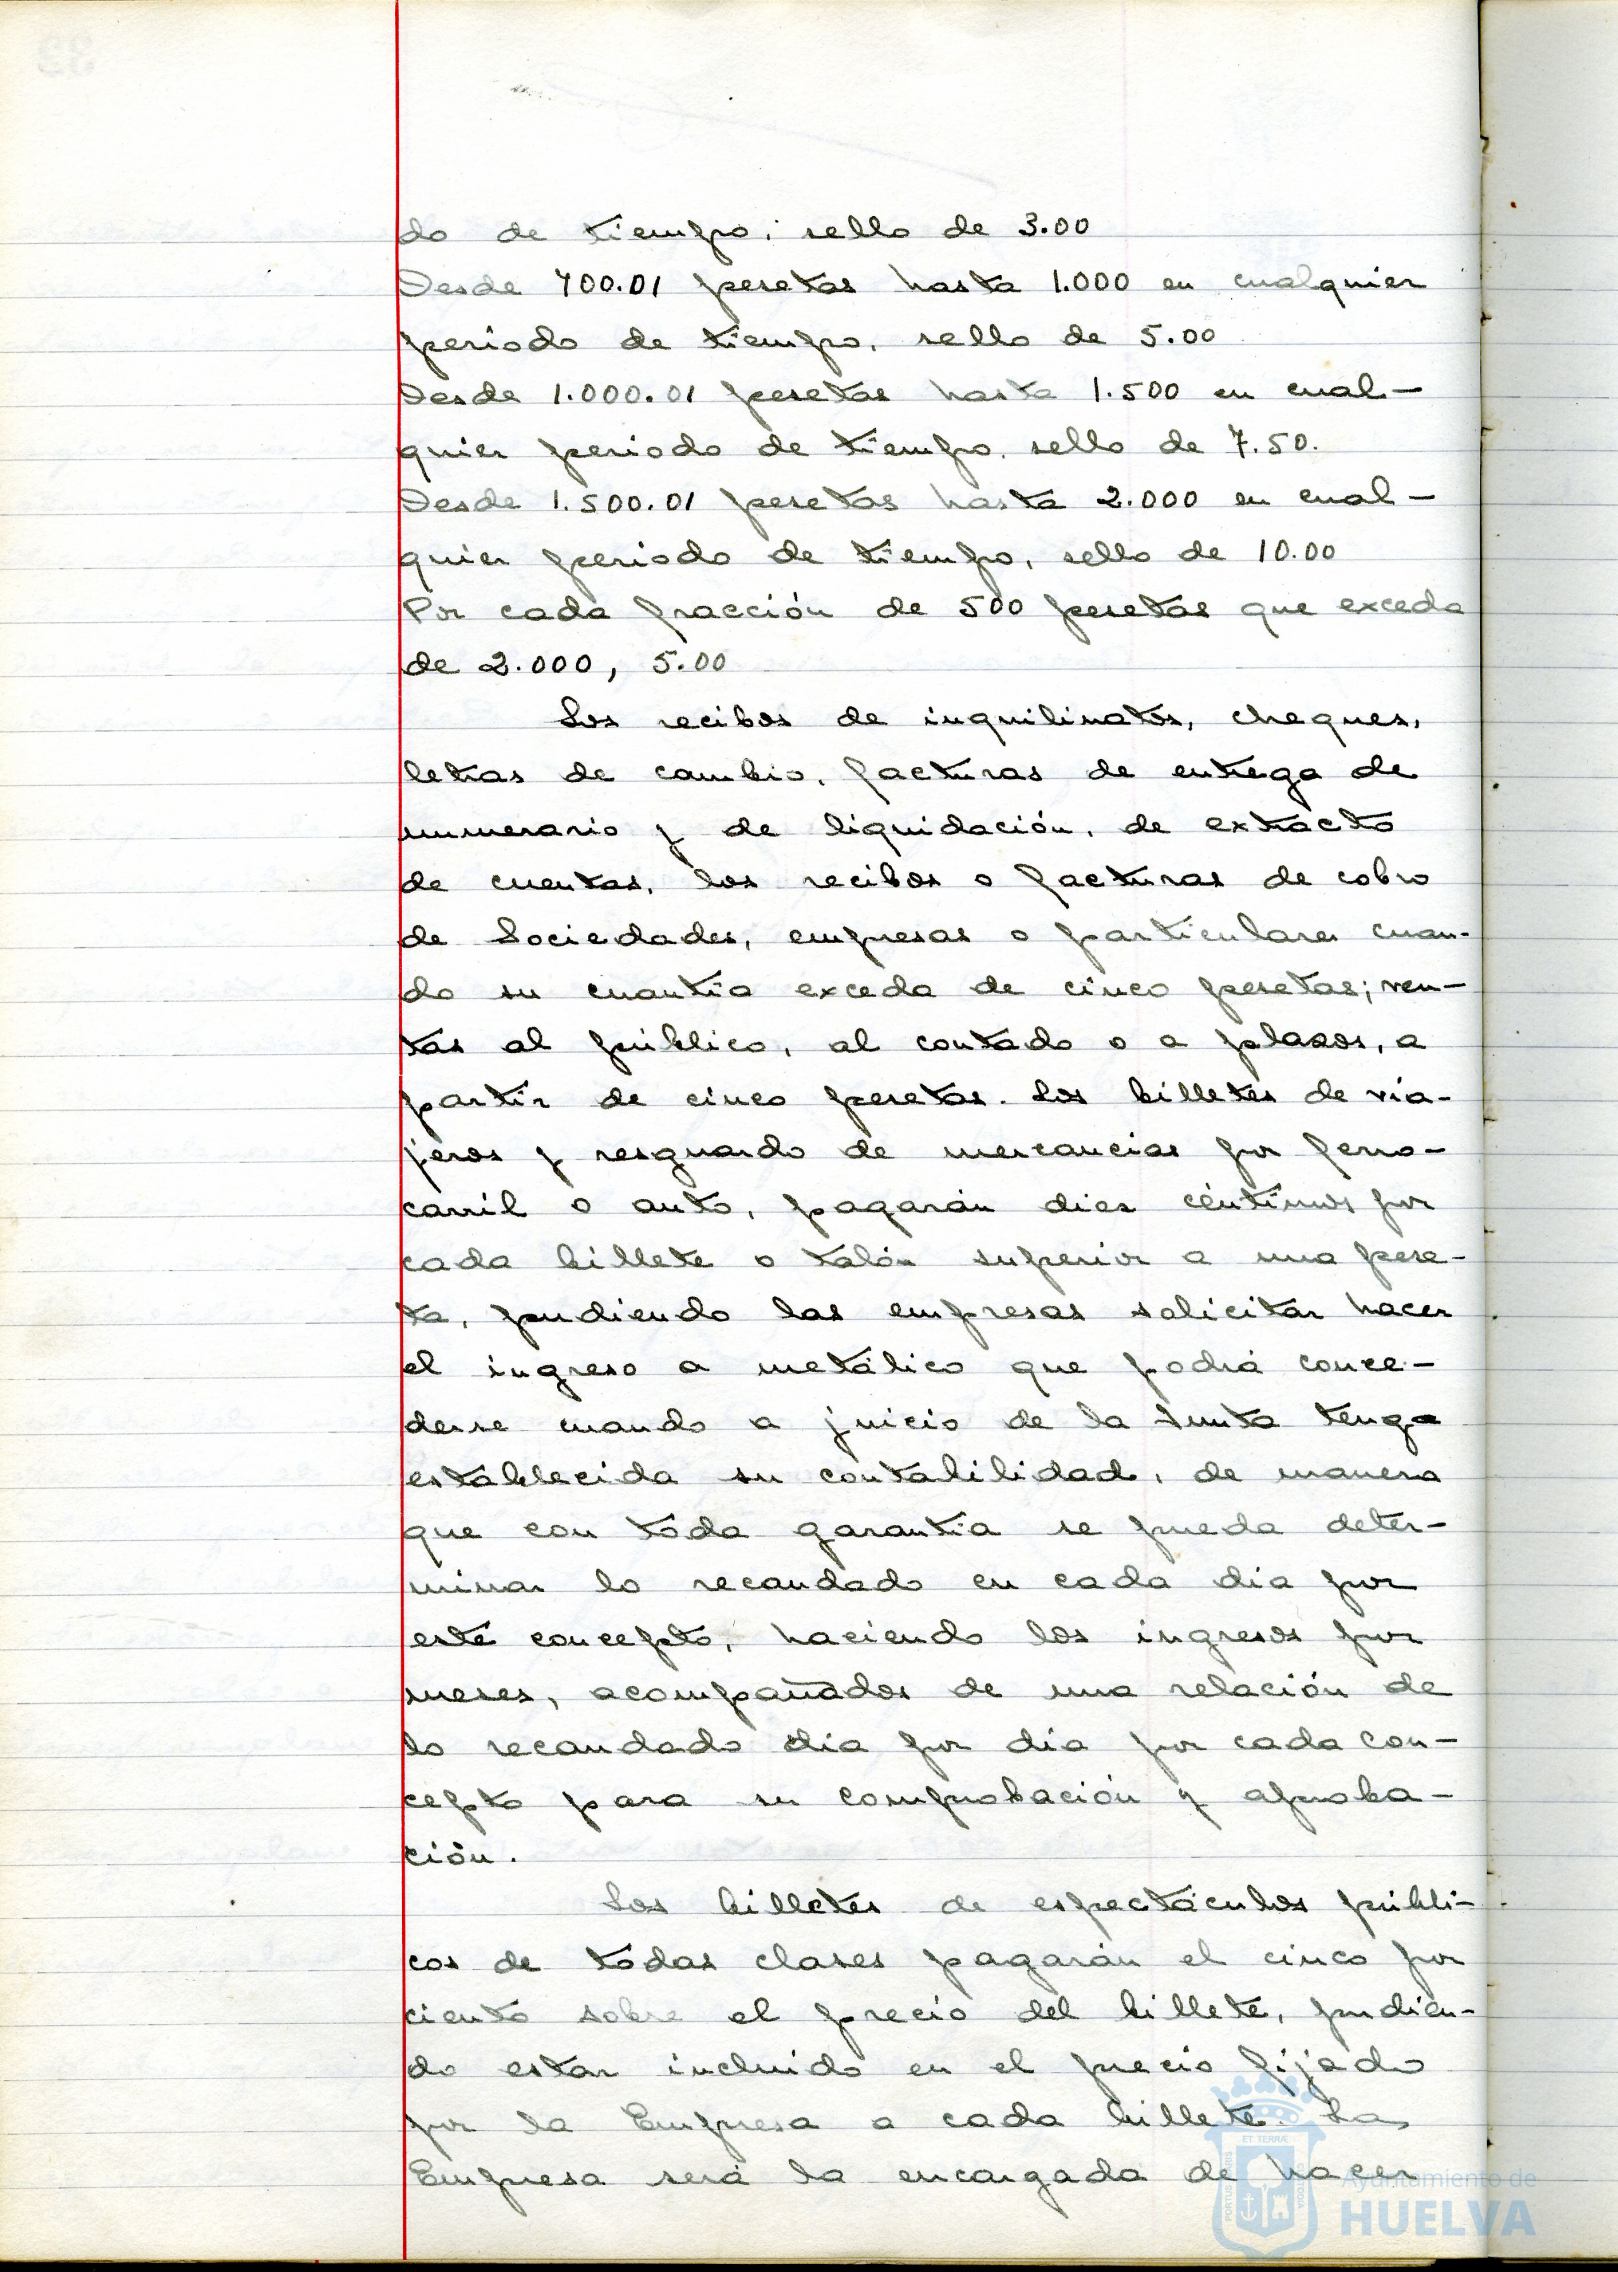 do de tiempo, sello de 3.00
Desde 700.01 pesetas hasta 1.000 en cualquier
periodo de tiempo, sello de 5.00
Desde 1.000.01 pesetas hasta 1.500 en cual-
quier periodo de tiempo, sello de 7.50.
Desde 1.500.01 pesetas hasta 2.000 en cual-
quier periodo de tiempo, sello de 10.00
Por cada fracción de 500 pesetas que exceda
de 2.000, 5.00
Los recibos de inquilinatos, cheques,
letras de cambio, facturas de entrega de
numerario y de liquidación, de extracto
de cuentas, los recibos o facturas de cobro
de Sociedades, empresas o particulares cuan-
do su cuantía exceda de cinco pesetas; ven-
tas al público, al contado o a plazos, a
partir de cinco pesetas. Los billetes de via-
jeros y resguardo de mercancías por ferro-
carril o auto, pagarán diez céntimos por
cada billete o talón superior a una pese-
ta, pudiendo las empresas solicitar hacer
el ingreso a metálico que podrá conce-
derse cuando a juicio de la Junta tenga
establecida su contabilidad, de manera
que con toda garantía se pueda deter-
minar lo recaudado en cada día por
este concepto, haciendo los ingresos por
meses, acompañados de una relación de
lo recaudado día por día por cada con-
cepto para su comprobación y aproba-
ción.
Los billetes de espectáculos públi-
cos de todas clases pagarán el cinco por
ciento sobre el precio del billete, pudien-
do estar incluido en el precio fijado
por la Empresa a cada billete. La
Empresa será la encargada de hacer
ET TERRÆ
PORTUS MARIS
CUSTODIA
Ayuntamiento de
HUELVA